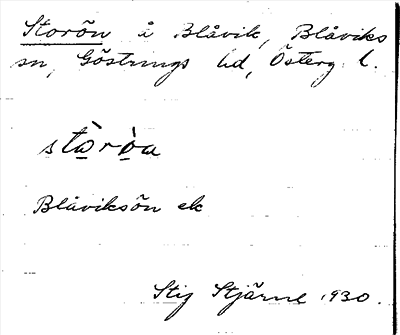 Storön å Blåvik, Blåviks
sn, Göstrings hd, Österg l.
stò̲rò̲a
Blåviksön ek
Stig Stjärne 1930.